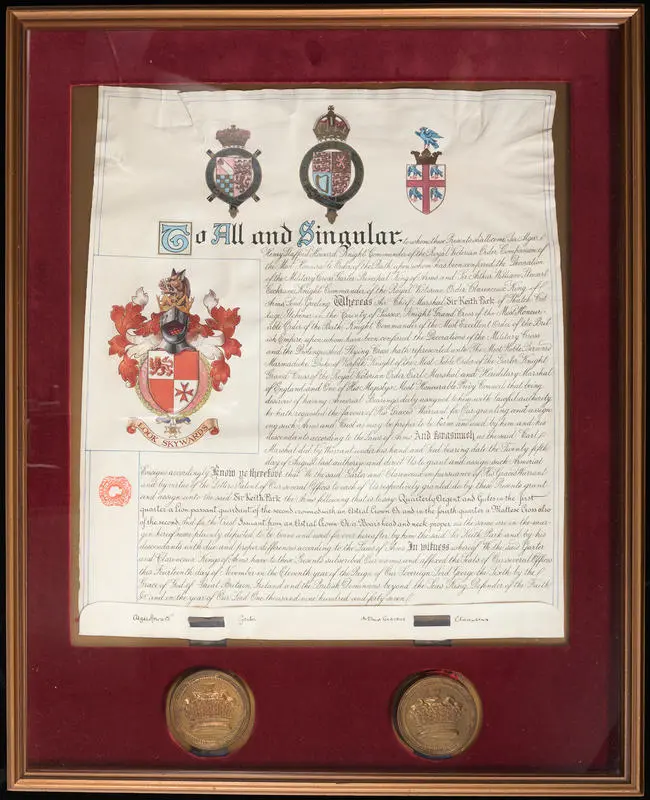 To All and Singular to whom these Presents shall come Sir Algar
Henry Stafford Howard Knight Commander of the Royal Victorian Order Companion of
the Most Honourable Order of the Bath upon whom has been conferred the Decoration
of the Military Cross Garter Principal King of Arms and Sir Arthur William Steuart
Cochrane Knight Commander of the Royal Victorian Order Clarenceux King of
Arms Send Greeting Whereas Air Chief Marshal Sir Keith Park of
in the County of Knight Grand Cross of the Most Honour-
able Order of the Bath Knight Commander of the Most Excellent Order of the Brit-
ish Empire upon whom have been conferred the Decorations of the Military Cross
and the Distinguished Flying Cross hath represented unto The Most Noble Bernard
Marmaduke Duke of Norfolk Knight of the Most Noble Order of the Garter Knight
Grand Cross of the Royal Victorian Order Earl Marshal and Hereditary Marshal
of England and One of His Majesty's Most Honourable Privy Council that being
desirous of having Armorial Bearings duly assigned to him with lawful authority
he hath requested the favour of His Grace's Warrant for Our granting and assign-
ing such Arms and Crest as may be proper to be borne and used by him and his
descendants according to the Laws of Arms And forasmuch as the said Earl
Marshal did by Warrant under his hand and Seal bearing date the Twenty fifth
day of August last authorize and direct Us to grant and assign such Armorial
LOOK SKYWARDS
Ensigns accordingly Know ye therefore that We the said Garter and Clarenceux in pursuance of His Grace's Warrant
and by virtue of the Letters Patent of Our several Offices to each of Us respectively granted do by these Presents grant
and assign unto the said Sir Keith Park the Arms following that is to say Quarterly Argent and Gules in the first
quarter a Lion passant guardant of the second crowned with an Astral Crown Or and in the fourth quarter a Maltese Cross also
of the second And for the Crest Issuant from an Astral Crown Or a Boar's head and neck proper as the same are in the mar-
gin hereof more plainly depicted to be borne and used for ever hereafter by him the said Sir Keith Park and by his
descendants with due and proper differences according to the Laws of Arms In witness whereof We the said Garter
and Clarenceux Kings of Arms have to these Presents subscribed Our names and affixed the Seals of Our several Offices
this Fourteenth day of November in the Eleventh year of the Reign of Our Sovereign Lord George the Sixth by the
Grace of God of Great Britain, Ireland and the British Dominions beyond the Seas King, Defender of the Faith
&c and in the year of Our Lord One thousand nine hundred and forty seven
Algar Howard Garter Arthur Cochrane Clarenceux